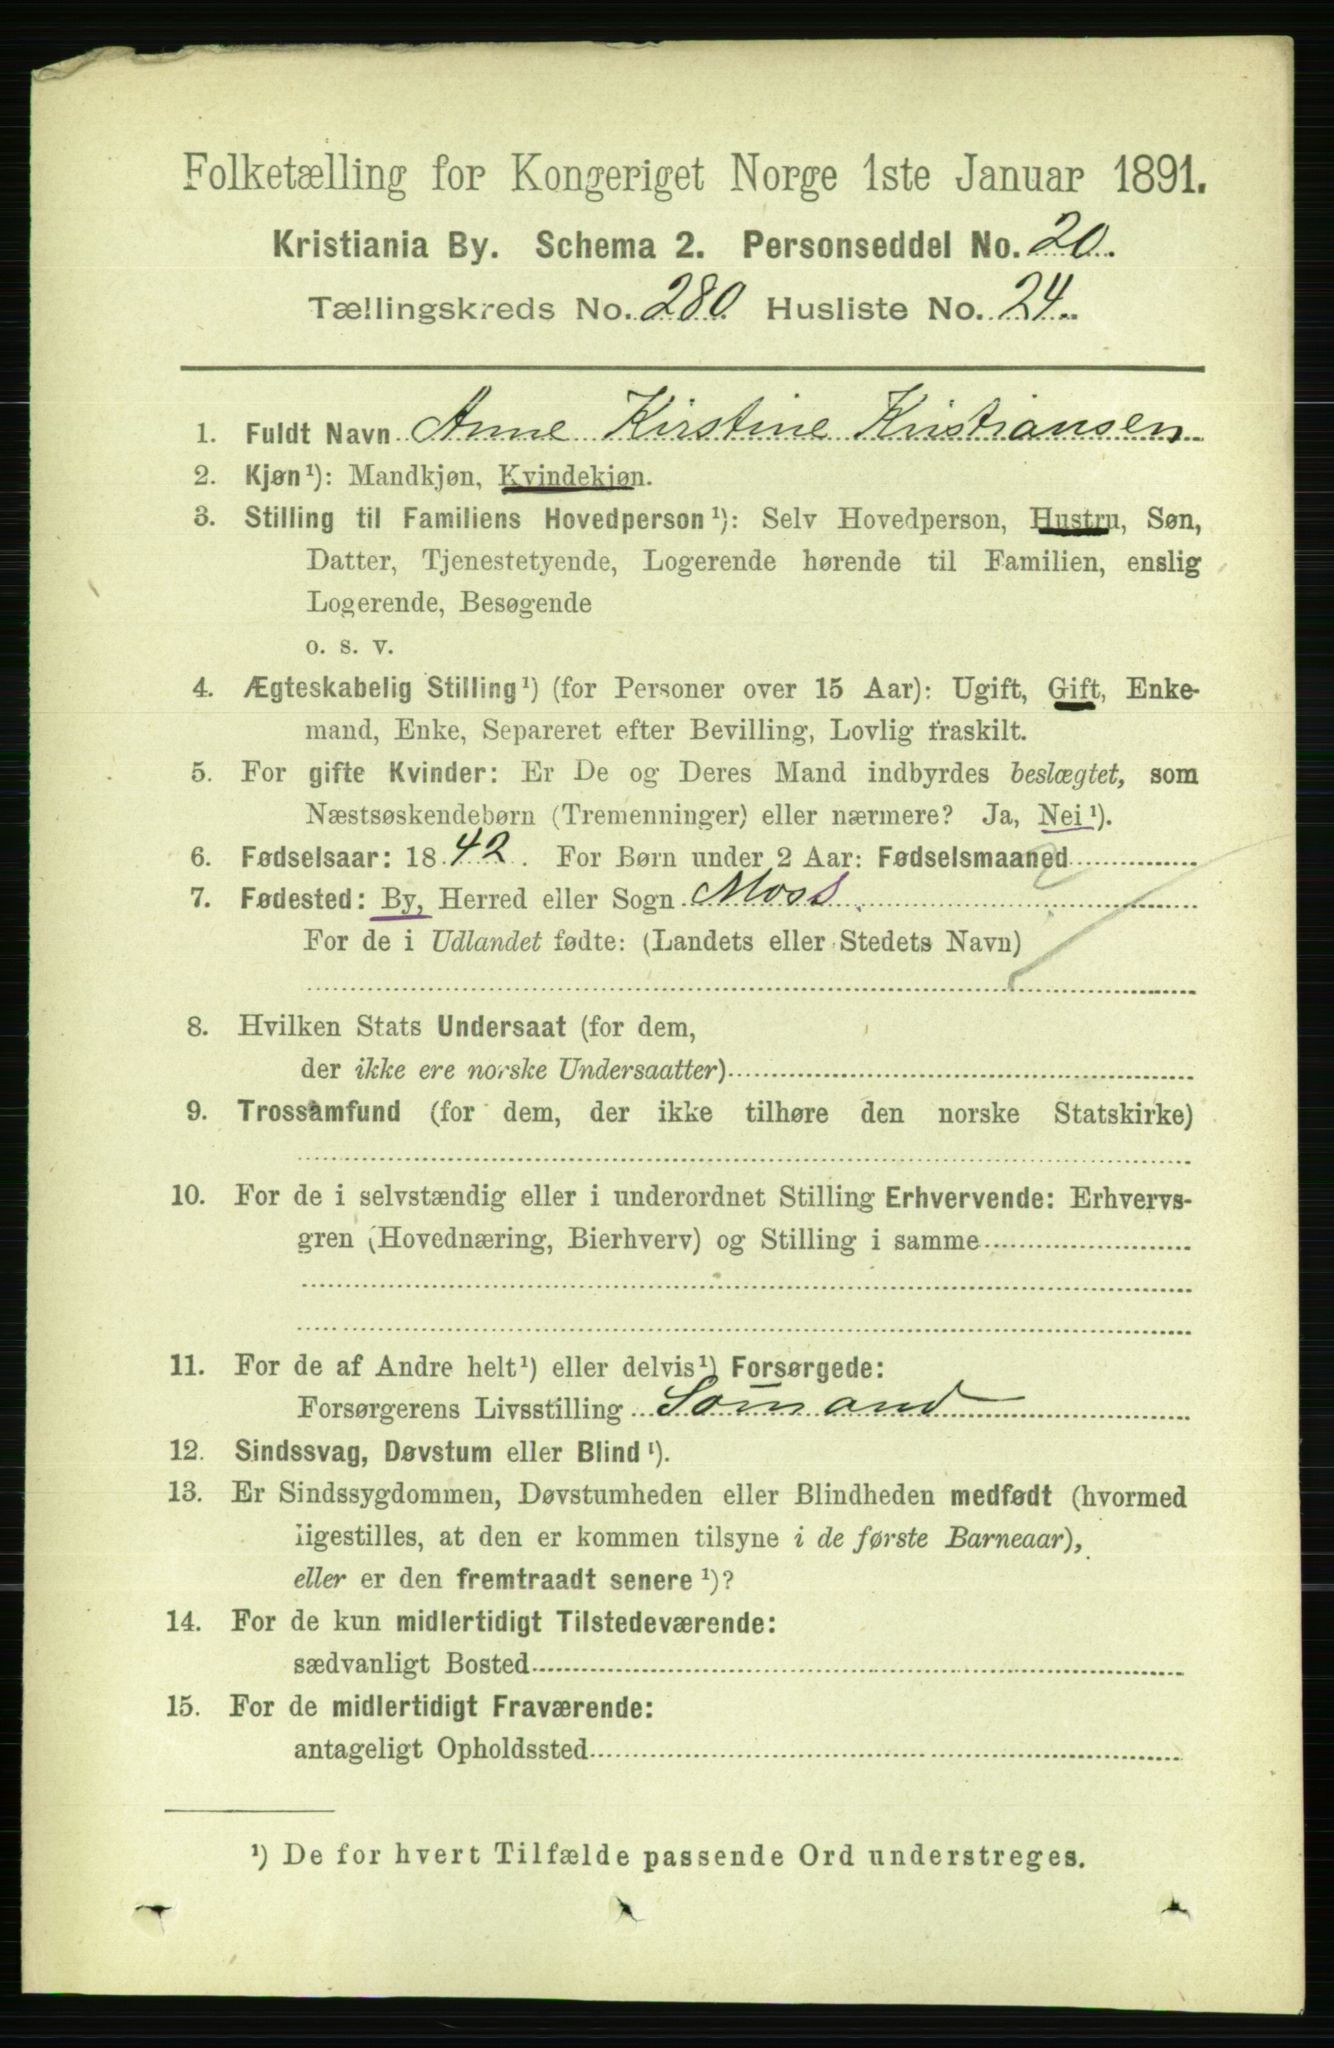 Folketælling for Kongeriget Norge 1ste Januar 1891.
Kristiania By. Schema 2. Personseddel No. 20.
Tællingskreds No. 280 Husliste No. 24.
1. Fuldt Navn Anne Kirstine Kristiansen
2. Kjøn¹): Mandkjøn, Kvindekjøn.
3. Stilling til Familiens Hovedperson¹): Selv Hovedperson, Hustru, Søn,
Datter, Tjenestetyende, Logerende hørende til Familien, enslig
Logerende, Besøgende
o. s. v.
4. Ægteskabelig Stilling¹) (for Personer over 15 Aar): Ugift, Gift, Enke-
mand, Enke, Separeret efter Bevilling, Lovlig fraskilt.
5. For gifte Kvinder: Er De og Deres Mand indbyrdes beslægtet, som
Næstsøskendebørn (Tremenninger) eller nærmere? Ja, Nei¹).
6. Fødselsaar: 1842. For Børn under 2 Aar: Fødselsmaaned
7. Fødested: By, Herred eller Sogn Moss.
For de i Udlandet fødte: (Landets eller Stedets Navn)
8. Hvilken Stats Undersaat (for dem,
der ikke ere norske Undersaatter)
9. Trossamfund (for dem, der ikke tilhøre den norske Statskirke)
10. For de i selvstændig eller i underordnet Stilling Erhvervende: Erhvervs-
gren (Hovednæring, Bierhverv) og Stilling i samme
11. For de af Andre helt¹) eller delvis¹) Forsørgede:
Forsørgerens Livsstilling Sömand
12. Sindssvag, Døvstum eller Blind¹).
13. Er Sindssygdommen, Døvstumheden eller Blindheden medfødt (hvormed
ligestilles, at den er kommen tilsyne i de første Barneaar),
eller er den fremtraadt senere¹)?
14. For de kun midlertidigt Tilstedeværende:
sædvanligt Bosted
15. For de midlertidigt Fraværende:
antageligt Opholdssted
¹) De for hvert Tilfælde passende Ord understreges.